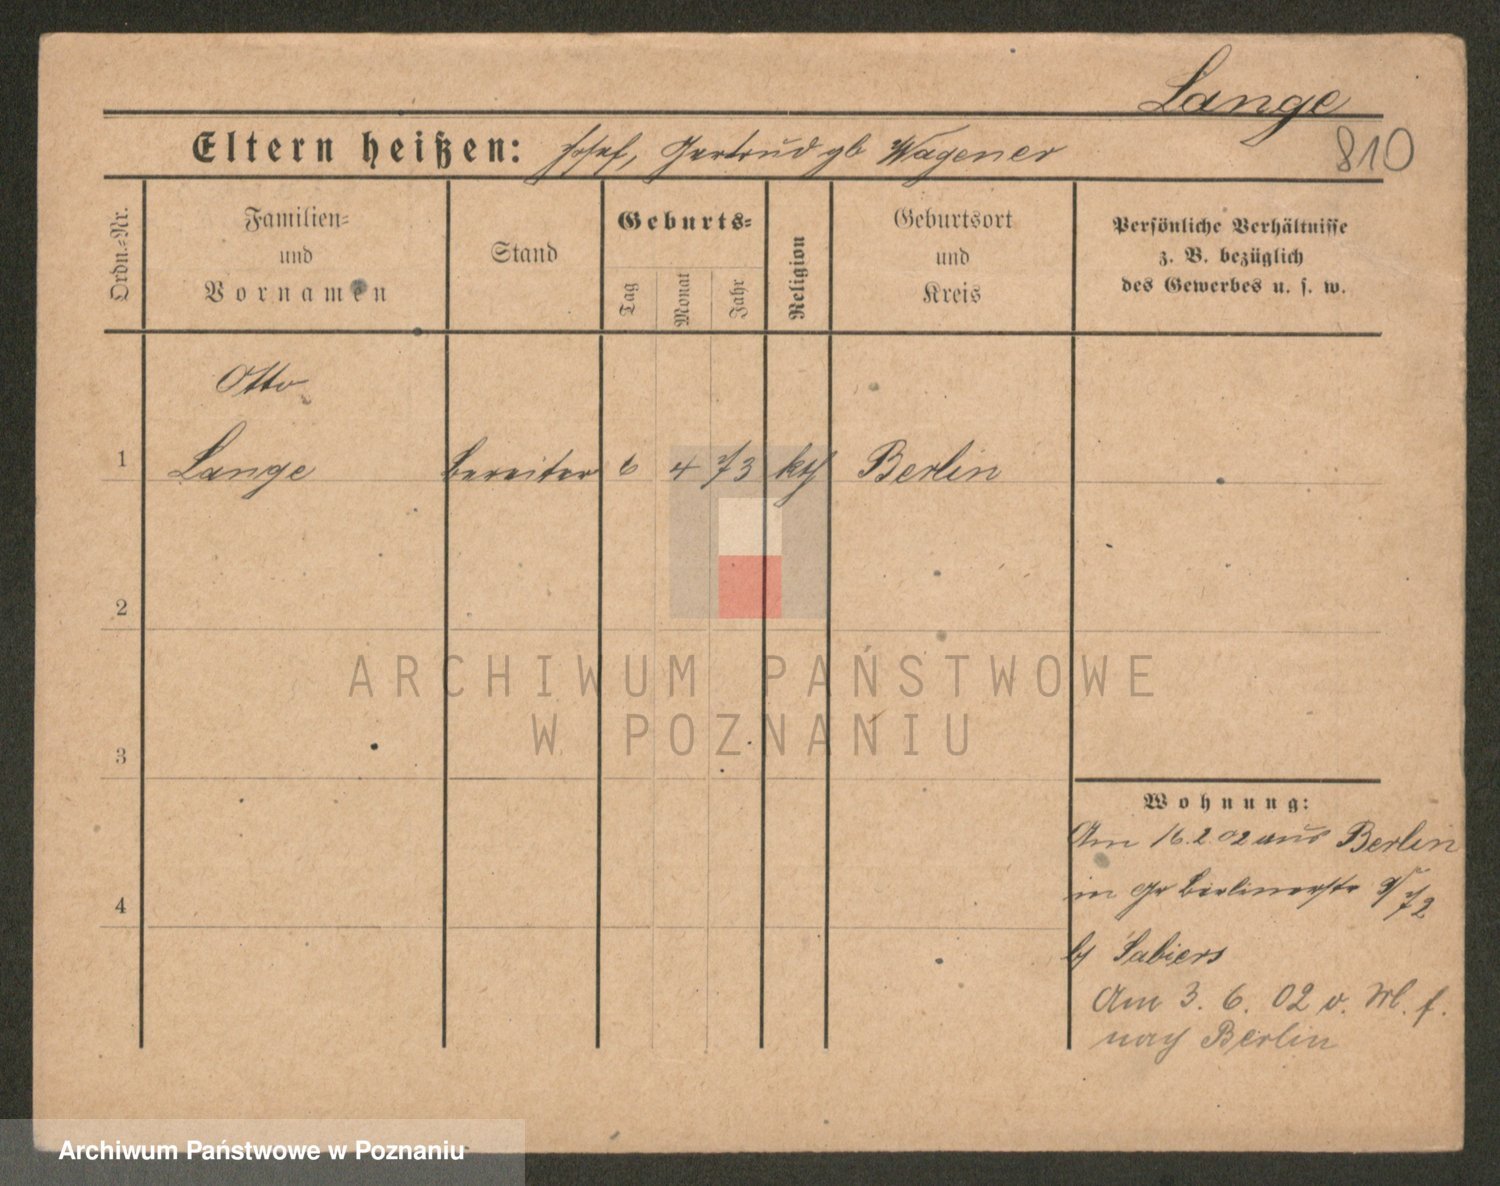 Lange
810
Eltern heißen: Josef, Gertrud gb Wagener
Ordn.-Nr.
Familien-
und
Vornamen
Stand
Geburts-
Tag
Monat
Jahr
Religion
Geburtsort
und
Kreis
Persönliche Verhältnisse
z. B. bezüglich
des Gewerbes u. s. w.
Otto
1 Lange Bereiter 6 4 73 kth Berlin
2
3
4
ARCHIWUM PAŃSTWOWE
W POZNANIU
Wohnung:
Am 16.2.02 aus Berlin
in Gr Berlinerstr
b/ Sabiers
Am 3. 6. 02 v.
nach Berlin
Archiwum Państwowe w Poznaniu